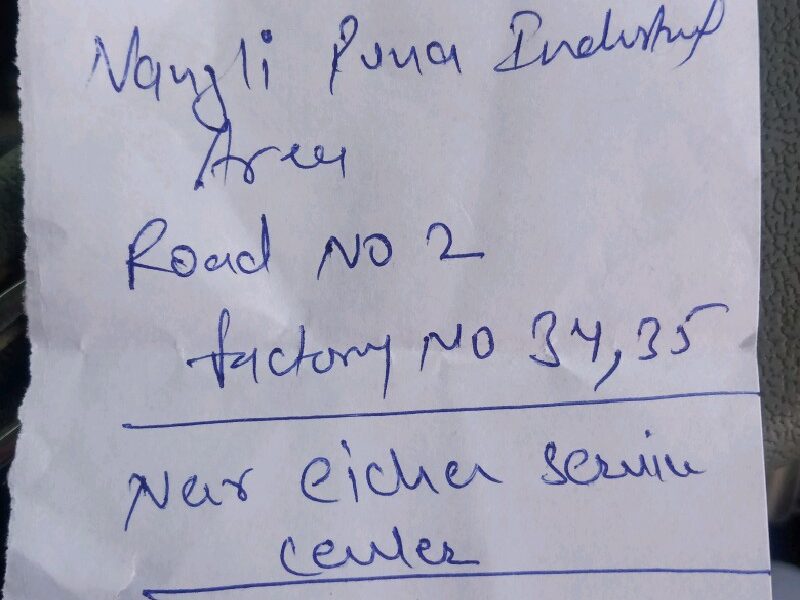 Nangli Puna Industrial
Area
Road NO 2
factory NO 34,35
Near eicher service
center